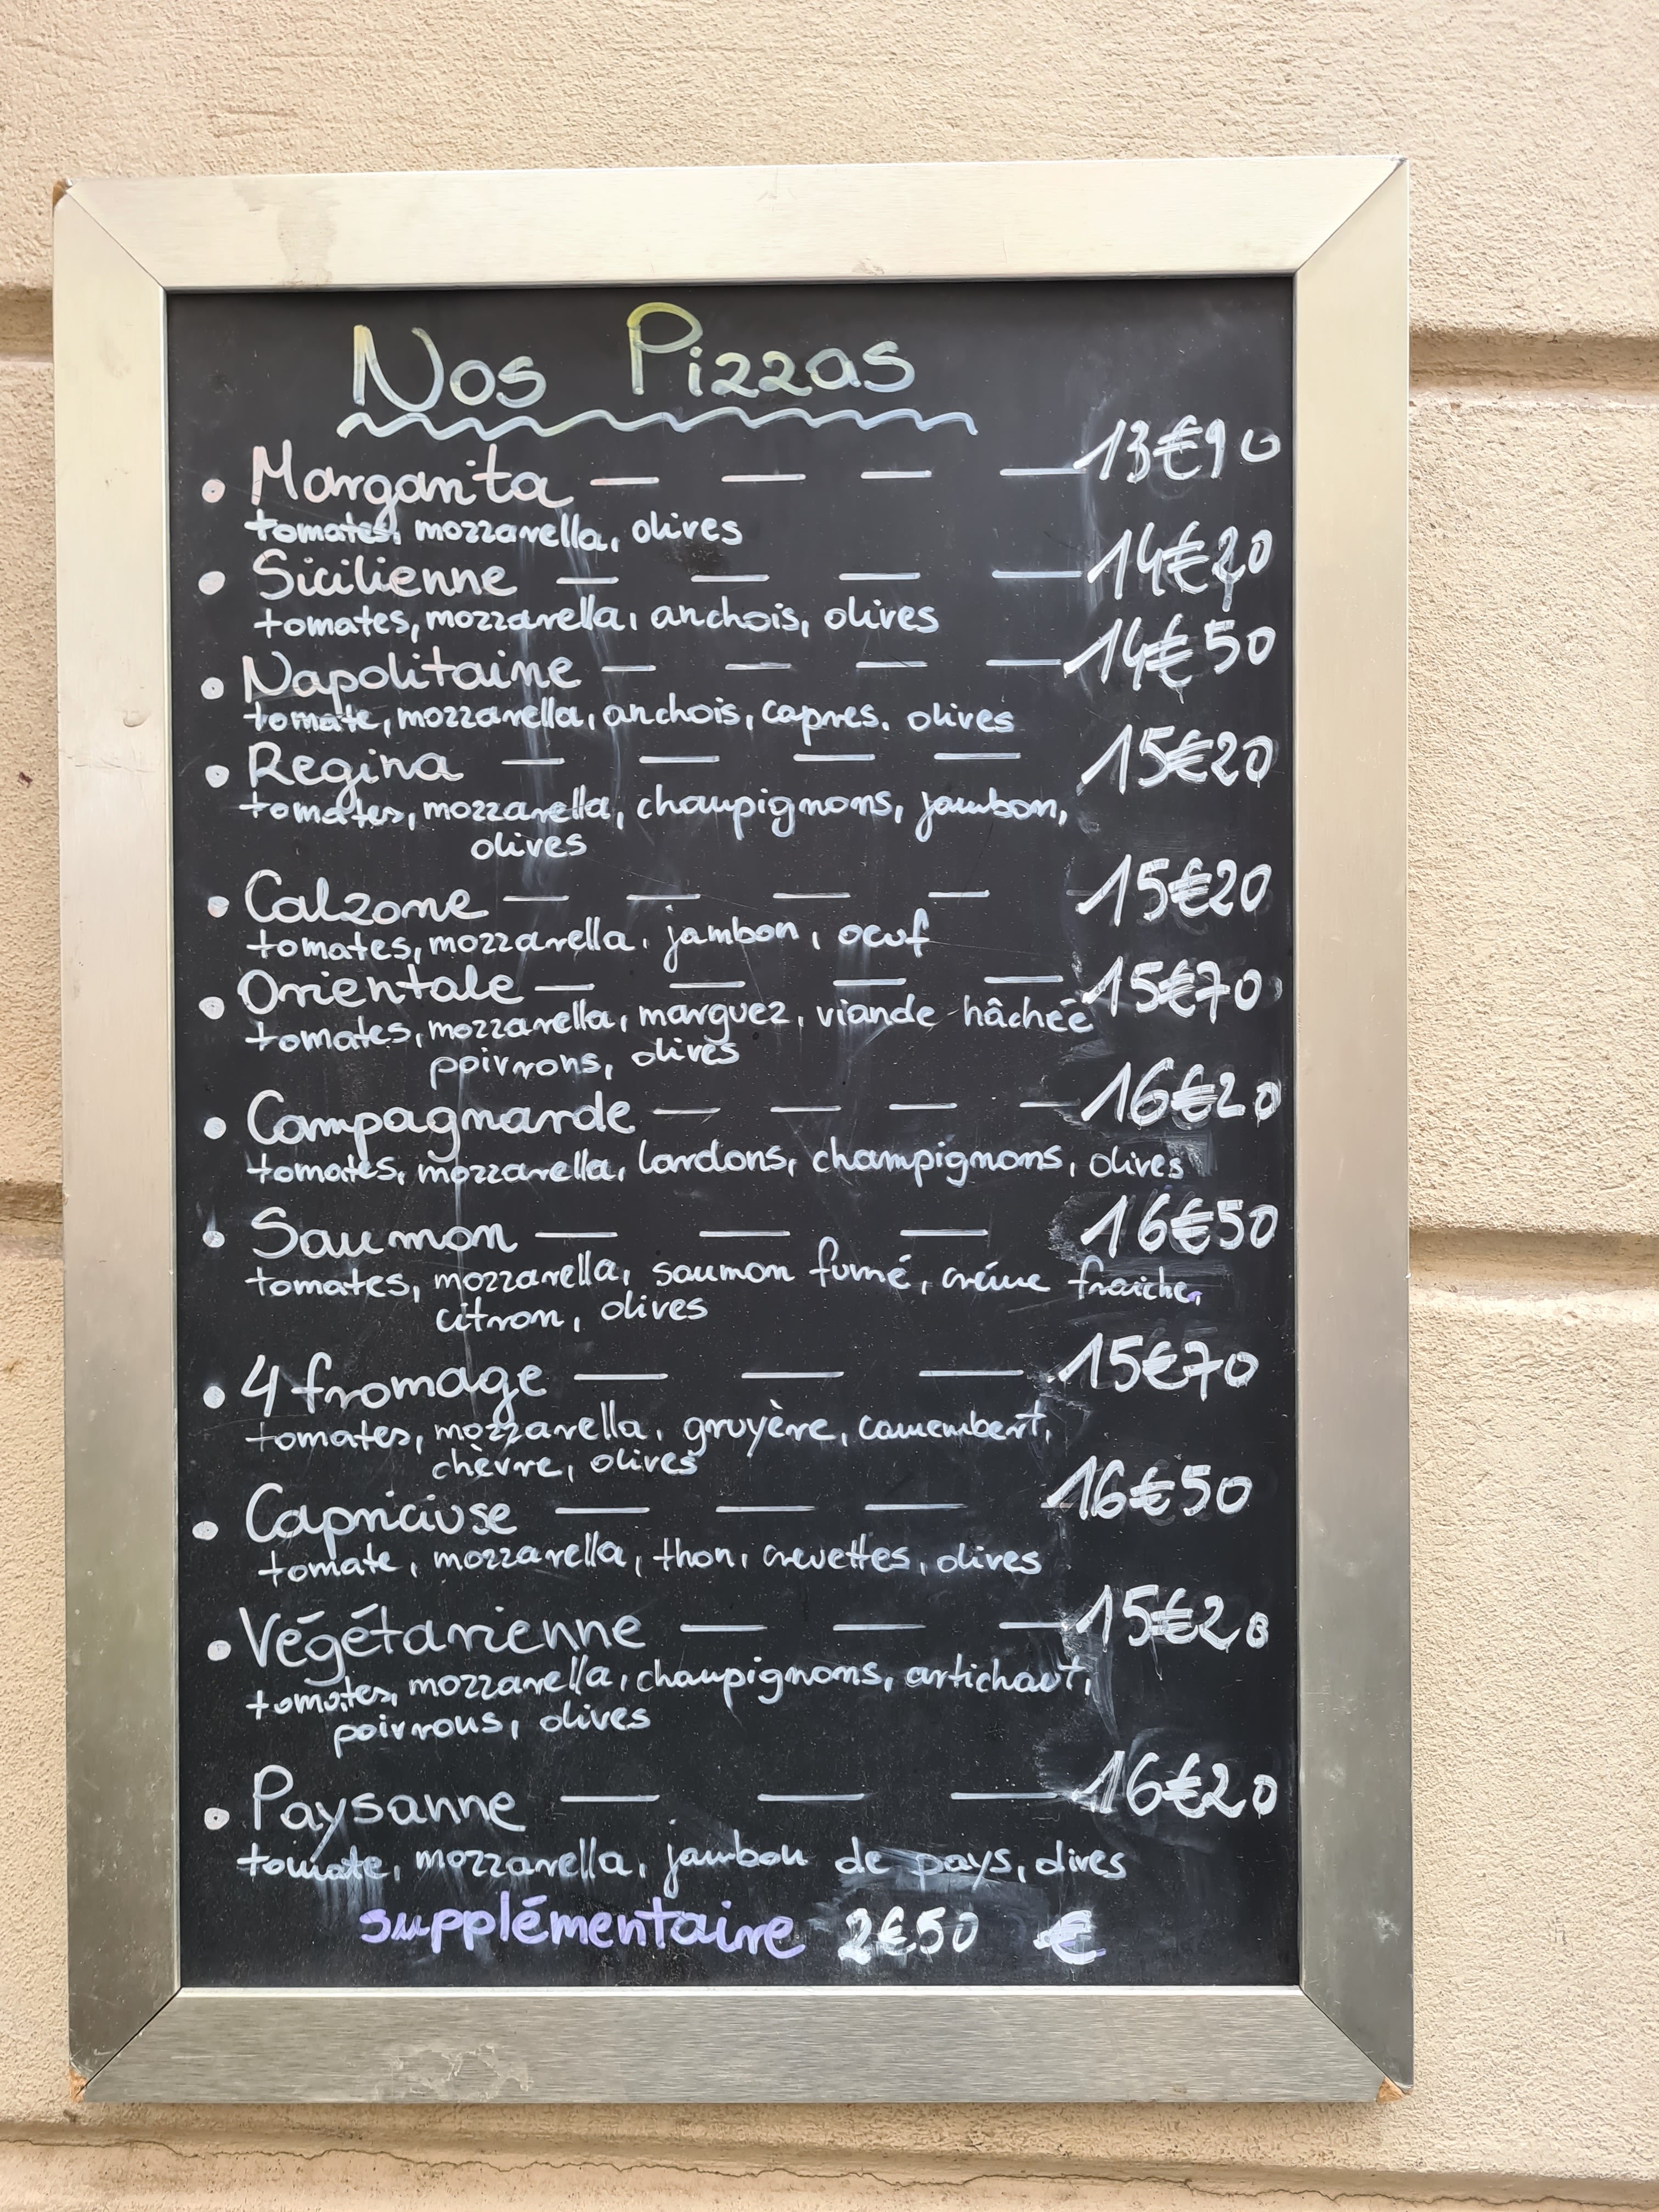 Nos Pizzas
• Margarita — — — — 13€90
tomates, mozzarella, olives
• Sicilienne — — — — 14€20
tomates, mozzarella, anchois, olives
• Napolitaine — — — — 14€50
tomate, mozzarella, anchois, capres. olives
• Regina — — — — 15€20
tomates, mozzarella, champignons, jambon,
olives
• Calzone — — — — 15€20
tomates, mozzarella, jambon, oeuf
• Orientale — — — — 15€70
tomates, mozzarella, marguez, viande hâchée
poivrons, olives
• Campagnarde — — — — 16€20
tomates, mozzarella, lardons, champignons, olives
• Saumon — — — 16€50
tomates, mozzarella, saumon fumé, créme fraiche,
citron, olives
• 4 fromage — — — 15€70
tomates, mozzarella, gruyère, camembert,
chèvre, olives
• Capriciuse — — — 16€50
tomate, mozzarella, thon, crevettes, olives
• Végétarienne — — — 15€20
tomates, mozzarella, champignons, artichaut,
poivrons, olives
• Paysanne — — — 16€20
tomate, mozzarella, jambon de pays, olives
supplémentaire 2€50 €